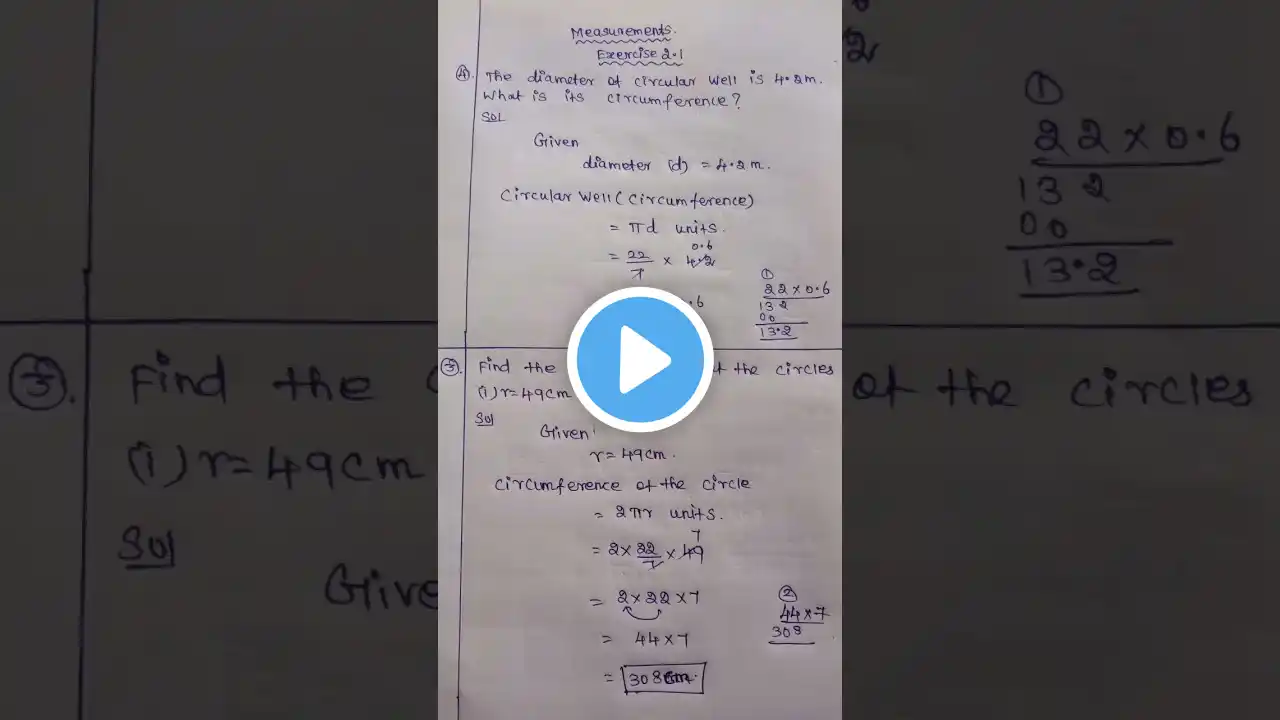 Measurements.
Exercise 2.1
④. The diameter of circular well is 4.2m.
What is its circumference?
Sol
Given
diameter (d) = 4.2m.
Circular Well (circumference)
= πd units.
0.6
= 22/7 × 4.2
.6
①
22×0.6
132
00
13.2
⑤. Find the of the circles
(i) r=49cm
Sol
Given
r=49cm.
Circumference of the circle
= 2πr units.
7
= 2×22/7×49
= 2×22×7
= 44×7
= 308cm.
②
44×7
308
①
22×0.6
132
00
13.2
⑤. Find the
(i) r=49cm
Sol
of the circles